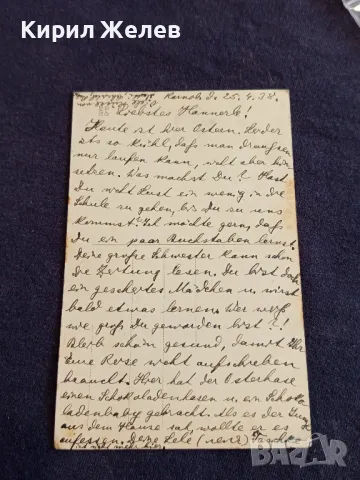 Кирил Желев
Karnobat d. 25.4.38.
Liebstes Hannerle!
Heute ist hier Ostern. Leider
ists so kühl, dass man draussen
nur laufen kann, nicht aber hin
setzen. Was machst Du? Hast
Du nicht Lust ein wenig in die
Schule zu gehen, bis Du zu uns
kommst? Ich möchte gern, dass
Du ein paar Buchstaben lernst.
Deine große Schwester kann schon
die Zeitung lesen. Du bist doch
ein gescheites Mädchen u. wirst
bald etwas lernen. Wer weiß
wie groß Du geworden bist?!
Bleib schön gesund, damit Ihr
Eure Reise nicht aufschieben
braucht. Hier hat der Osterhase
einen Schokoladenhasen u. ein Schoko
ladenbaby gebracht. Als es der
aus dem Hause sah, wollte er es
aufessen. Deine Lele (леля)
ist nicht mehr hier.
bazar.bg